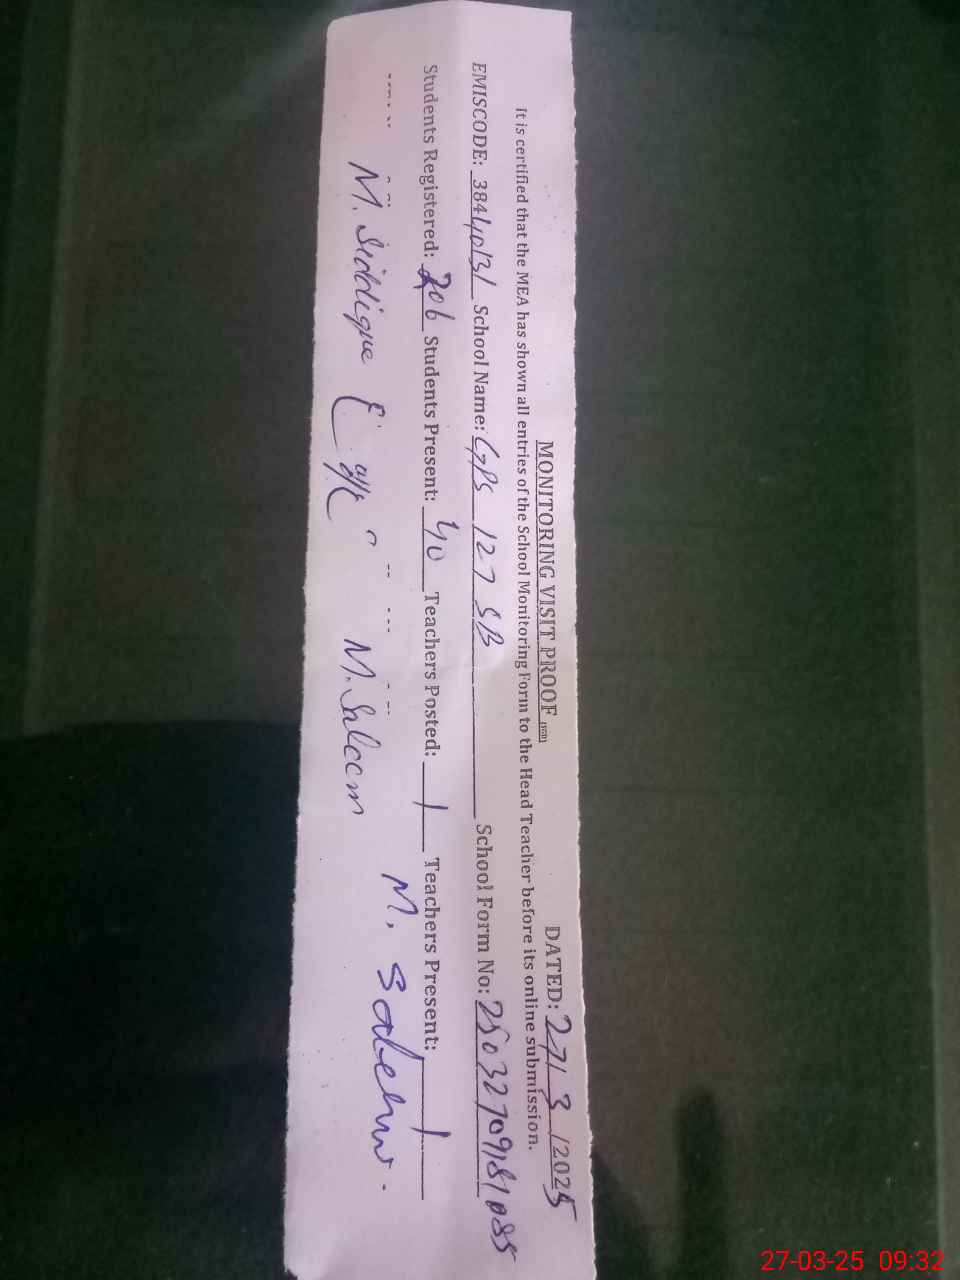 MONITORING VISIT PROOF
DATED: 27/3/2025
It is certified that the MEA has shown all entries of the School Monitoring Form to the Head Teacher before its online submission.
EMISCODE: 38440131 School Name: GPS 127 SB School Form No: 250327091811085
Students Registered: 206 Students Present: 40 Teachers Posted: 1 Teachers Present: 1
M. Siddique M. Saleem M. Saleem
27-03-25 09:32